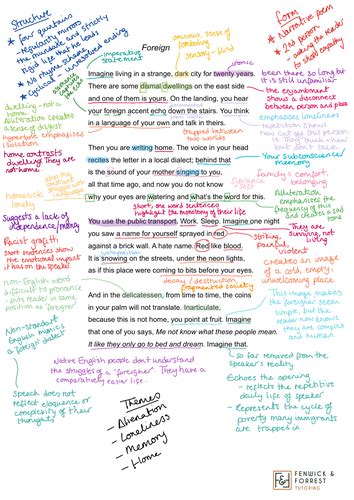 Structure
* four quatrains
- regularity mirrors
the mundane and strictly
life that the lead
* no rhyme scheme
* cyclical ending
unresolved
Form
* Narrative poem
* 2nd person
- asking the reader
to show empathy
Foreign
imperative
statement
ominous, sense of
foreboding
sensory - kind
Imagine living in a strange, dark city for twenty years.
There are some dismal dwellings on the east side
and one of them is yours. On the landing, you hear
your foreign accent echo down the stairs. You think
in a language of your own and talk in theirs.
been there so long but
it is still unfamiliar
the enjambment
shows a disconnect
between person and place
dwelling - not a
home
alliteration creates
a sense of disgust
hyperbole emphasises
isolation
home contrasts
dwelling. They are
not home
trapped between
two worlds
emphasises loneliness
Then you are writing home. The voice in your head
recites the letter in a local dialect; behind that
is the sound of your mother singing to you,
all that time ago, and now you do not know
why your eyes are watering and what's the word for this.
Your subconscious/
memory
family = comfort,
belonging
homesick
lonely
short, one word sentences
highlight the monotony of their life
Alliteration
emphasises the
frequency of
this and creates a sad
tone
You use the public transport. Work. Sleep. Imagine one night
you saw a name for yourself sprayed in red
against a brick wall. A hate name. Red like blood.
It is snowing on the streets, under the neon lights,
as if this place were coming to bits before your eyes.
They are
surviving, not
living
Striking,
painful,
violent
Suggests a lack of
independence / money
Racist graffiti
Short sentences show
the emotional impact
it has on the speaker
juxtaposition
Creates an image
of a cold, empty,
unwelcoming place
decay / destruction
fragmented society
non-English word
difficult to pronounce
- puts reader in same
position as "foreigner"
And in the delicatessen, from time to time, the coins
in your palm will not translate. Inarticulate,
because this is not home, you point at fruit. Imagine
that one of you says, Me not know what these people mean.
It like they only go to bed and dream. Imagine that.
This image makes
the foreigner seem
simple, but the
reader now knows
they are complex
and human
Non-standard
English mimics
a "foreign" dialect
Native English people don't understand
the struggles of a "foreigner". They have a
comparatively easier life.
so far removed from the
speaker's reality
Echoes the opening
- reflects the repetitive
daily life of speaker
- Represents the cycle of
poverty many immigrants
are trapped in
Speech does not
reflect eloquence or
complexity of their
thoughts
Themes
- Alienation
- Loneliness
- Memory
- Home
F&F
FENWICK &
FORREST
TUTORING